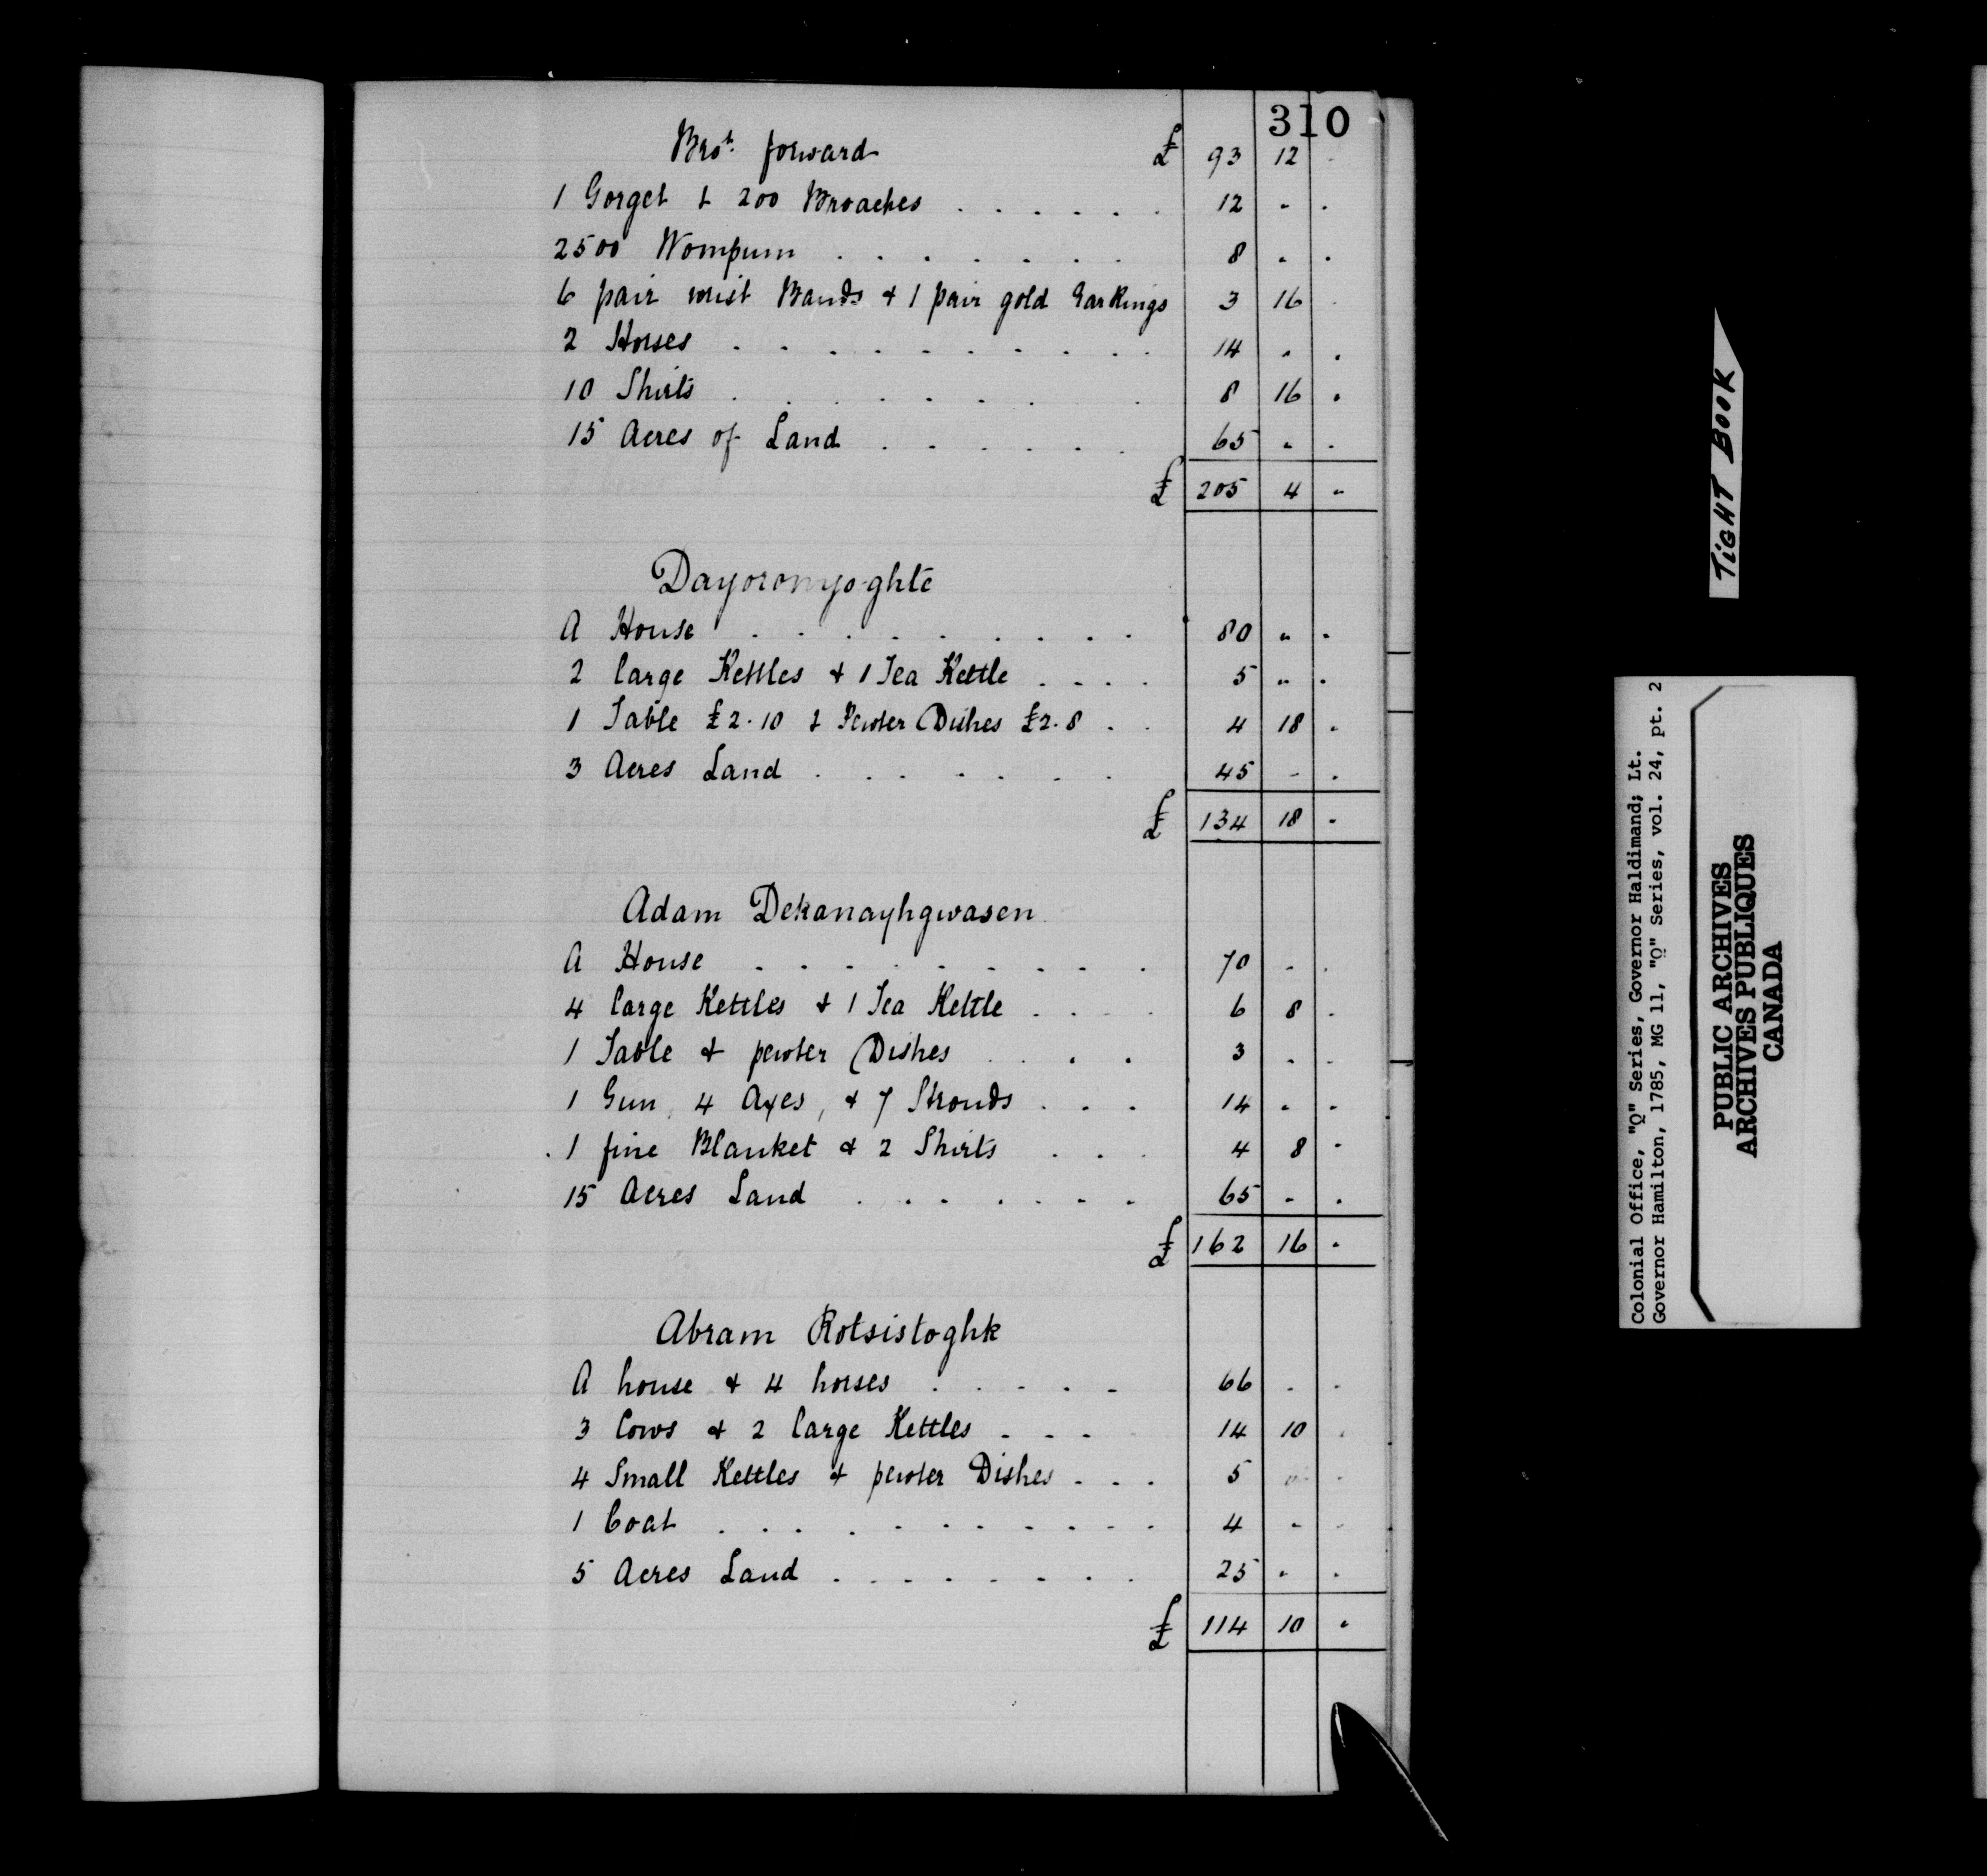 310
Brot. forward £ 93 12 .
1 Gorget & 200 Broaches . . . . . 12 - .
2500 Wompum . . . . . . . 8 . .
6 pair wrist Bands & 1 pair gold Ear Rings 3 16 .
2 Horses . . . . . . . . . . 14 . .
10 Shirts . . . . . . . . 8 16 .
15 Acres of Land . . . . . . 65 . .
£ 205 4 .
Dayoronyo-ghte
A House . . . . . . . . . 80 . .
2 large Kettles & 1 Tea Kettle . . . . 5 . .
1 Table £2.10 & Pewter Dishes £2.8 . . 4 18 .
3 Acres Land . . . . . . . 45 - .
£ 134 18 .
Adam Dekanayhgwasen
A House . . . . . . . . . 70 . .
4 large Kettles & 1 Tea Kettle . . . . 6 8 .
1 Table & pewter Dishes . . . . 3 . .
1 Gun, 4 Axes, & 7 Strouds . . . 14 . .
1 fine Blanket & 2 Shirts . . . 4 8 .
15 Acres Land . . . . . . . 65 - .
£ 162 16 .
Abram Rotsistoghk
A house & 4 horses . . . . . 66 . .
3 Cows & 2 large Kettles . . . 14 10 .
4 Small Kettles & pewter Dishes . . . 5 . .
1 Coat . . . . . . . . . . 4 - .
5 Acres Land . . . . . . . . 25 . .
£ 114 10 .
TIGHT BOOK
Colonial Office, "Q" Series, Governor Haldimand; Lt.
Governor Hamilton, 1785, MG 11, "Q" Series, vol. 24, pt. 2
PUBLIC ARCHIVES
ARCHIVES PUBLIQUES
CANADA